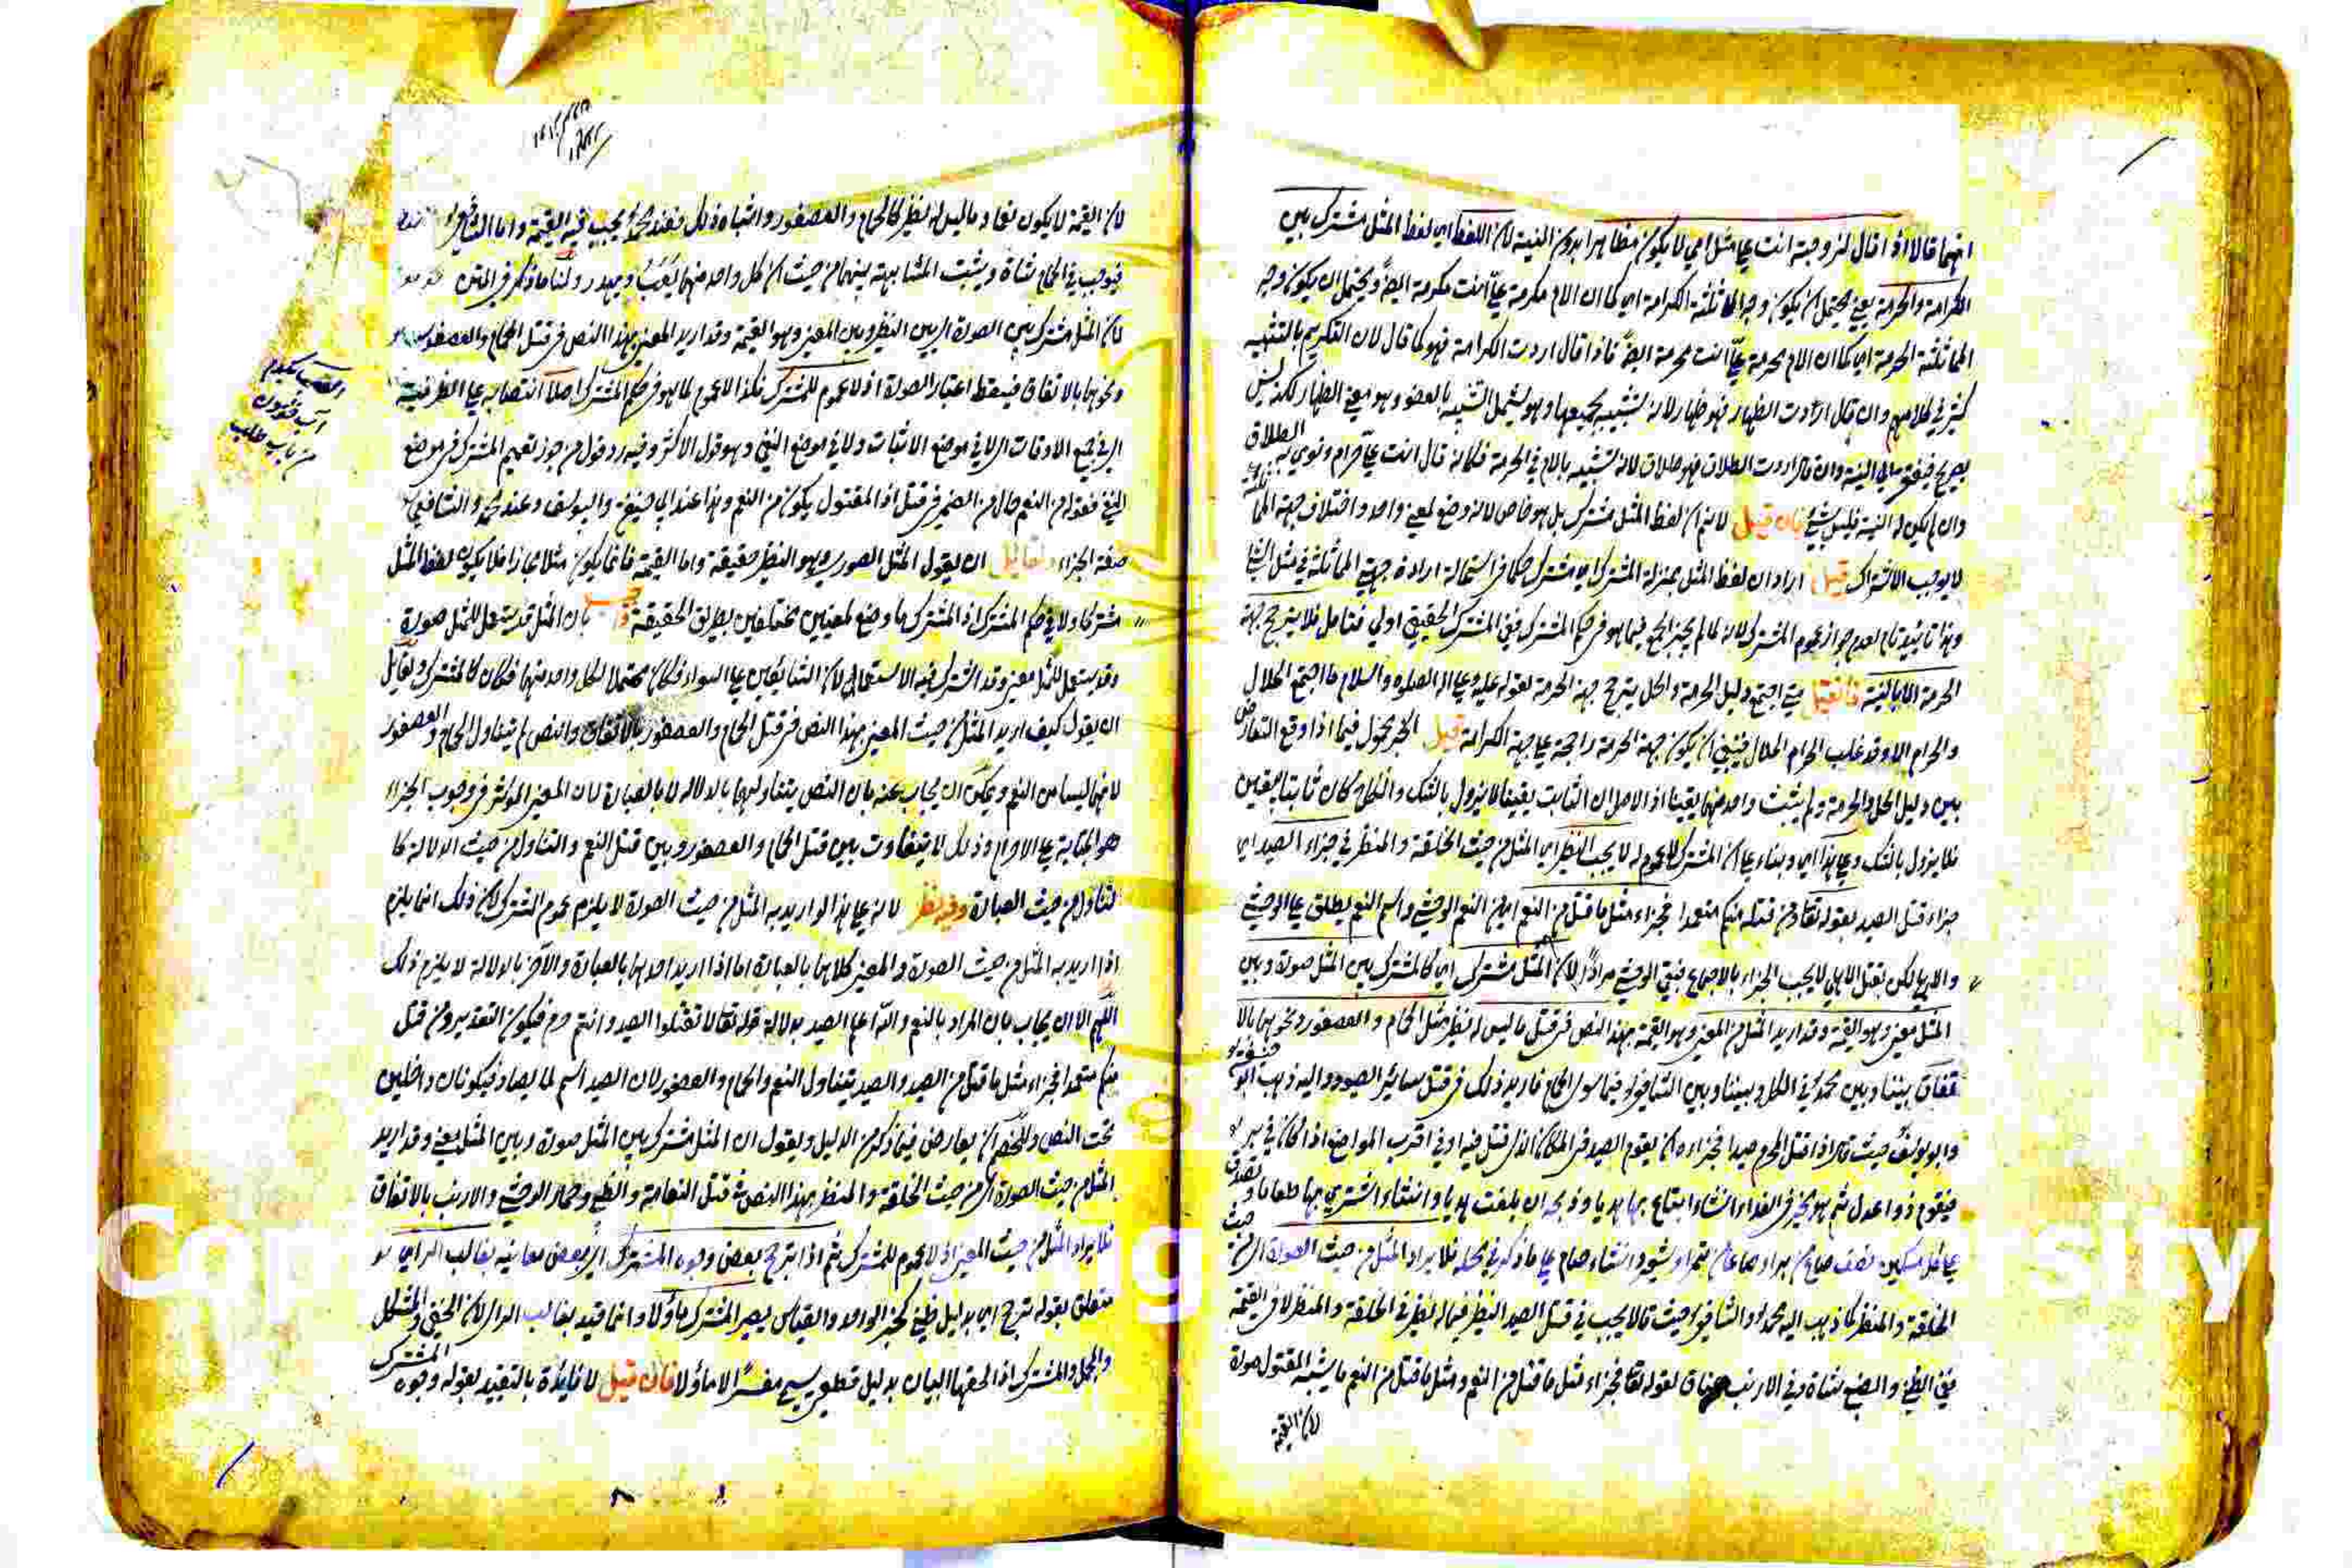 انهما قالا اذا قال لزوجته انت علي مثل امي لا يكون مظاهرا بدون النية لان اللفظ اي لفظ المثل مشترك بين
الكرامة والحرمة يعني يحتمل ان يكون وجه المماثلة الكرامة اي كما ان الام مكرمة علي انت مكرمة ايضا ويحتمل ان يكون وجه
المماثلة الحرمة اي كما ان الام محرمة علي انت محرمة ايضا فاذا قال اردت الكرامة فهو كما قال لان التكريم بالتشبيه
كثير في كلامهم وان قال اردت الظهار فهو ظهار لانه تشبيه بجميعها وهو يشمل التشبيه بالعضو وهو معنى الظهار لكنه ليس
بصريح فيفتقر الى النية وان قال اردت الطلاق فهو طلاق لانه تشبيه بالام في الحرمة فكانه قال انت علي حرام ونوى به الطلاق
وان لم يكن له النية فليس بشيء فان قيل لا نم ان لفظ المثل مشترك بل هو خاص لانه وضع لمعنى واحد واختلاف جهة المماثلة
لا يوجب الاشتراك قيل اراد ان لفظ المثل بمنزلة المشترك او مشترك حكما في استحالة ارادة جهتي المماثلة في مثل الشيء
وهذا تائيد تام لعدم جواز عموم المشترك لانه لما لم يجز الجمع فيما هو في حكم المشترك ففي المشترك الحقيقي اولى فتامل فلا يترجح جهة
الحرمة الا بالنية فان قيل متى اجتمع دليل الحرمة والحل يترجح جهة الحرمة لقوله عليه وعلى اله الصلوه والسلام ما اجتمع الحلال
والحرام الا وقد غلب الحرام الحلال فينبغي ان يكون جهة الحرمة راجحة على جهة الكرامة قيل الخبر محمول فيما اذا وقع التعارض
بين دليل الحل والحرمة ولم يثبت واحد منهما يقينا اذ الاصل ان الثابت يقينا لا يزول بالشك والنكاح كان ثابتا بيقين
فلا يزول بالشك وعلى هذا اي وبناء على ان المشترك لا عموم له لا يجب النظير اي المثل من حيث الخلقة والمنظر في جزاء الصيد اي
جزاء قتل الصيد بقوله تعالى ومن قتله منكم متعمدا فجزاء مثل ما قتل من النعم اي من النعم الوحشي واسم النعم يطلق على الوحشي
والاهلي لكن بقتل الاهلي لا يجب الجزاء بالاجماع فبقي الوحشي مرادا لان المثل مشترك اي كالمشترك بين المثل صورة وبين
المثل معنى وهو القيمة وقد اريد المثل من المعنى وهو القيمة بهذا النص في قتل ما ليس له نظير مثل الحمام والعصفور ونحوهما بالا
تفاق بيننا وبين محمد في الكل وبيننا وبين الشافعي فيما سوى الحمام فاريد ذلك في قتل سائر الصيود واليه ذهب ابو حنيفة
وابو يوسف حيث قالا اذا قتل المحرم صيدا فجزاءه ان يقوم الصيد في المكان الذي قتل فيه او في اقرب المواضع اذا كان في بر
فيقوم ذوا عدل ثم هو مخير في الفداء ان شاء ابتاع بها هديا وذبحه ان بلغت هديا وان شاء اشترى بها طعاما وتصدق
على كل مسكين نصف صاع من بر او صاعا من تمر او شعير وان شاء صام على ما ذكر في محله فلا يراد المثل من حيث الصورة اي من حيث
الخلقة والمنظر كما ذهب اليه محمد والشافعي حيث قالا يجب في قتل الصيد النظير فيما له نظير في الخلقة والمنظر لا في القيمة
ففي الظبي والضبع شاة وفي الارنب عناق لقوله تعالى فجزاء مثل ما قتل من النعم ومثل ما قتل من النعم ما يشبه المقتول صورة
لان القيمة
لان القيمة لا يكون نعما وما ليس له نظير كالحمام والعصفور واشباه ذلك فعند محمد يجب فيه القيمة واما الشافعي
فيوجب في الحمام شاة ويثبت المشابهة بينهما من حيث ان كل واحد منهما يعب ويهدر ولنا ما ذكر في المتن
لان المثل مشترك بين الصورة اي بين النظير وبين المعنى وهو القيمة وقد اريد المعنى بهذا النص في قتل الحمام والعصفور
ونحوهما بالاتفاق فيسقط اعتبار الصورة اذ لا عموم للمشترك فكذا لا عموم لما هو في حكم المشترك اصلا انتصابه على الظرفية
اي في جميع الاوقات اي لا في موضع الاثبات ولا في موضع النفي وهو قول الاكثر وفيه رد قول من جوز تعميم المشترك في موضع
النفي فقوله من النعم حال من الضمير في قتل اذ المقتول يكون من النعم وهذا عند ابي حنيفة وابي يوسف وعند محمد والشافعي
صفة الجزاء ولقائل ان يقول المثل الصوري وهو النظير حقيقة واما القيمة فانما يكون مثلا مجازا فلا يكون لفظ المثل
مشتركا ولا في حكم المشترك اذ المشترك ما وضع لمعنيين مختلفين بطريق الحقيقة بان المثل قد يستعمل للمثل صورة
وقد يستعمل للمثل معنى وقد اشترك فيه الاستعمالان الشائعان على السواء فكان محتملا لكل واحد منهما فكان كالمشترك ولقائل
ان يقول كيف اريد المثل من حيث المعنى بهذا النص في قتل الحمام والعصفور بالاتفاق والنص لم يتناول الحمام والعصفور
لانهما ليسا من النعم ويمكن ان يجاب عنه بان النص يتناولهما بالدلالة لا بالعبارة لان المعنى المؤثر في وجوب الجزاء
هو الجناية على الاحرام وذلك لا يتفاوت بين قتل الحمام والعصفور وبين قتل النعم والتناول من حيث الدلالة كا
لتناول من حيث العبارة وفيه نظر لانه على هذا لو اريد به المثل من حيث الصورة لا يلزم عموم المشترك لان ذلك انما يلزم
اذا اريد به المثل من حيث الصورة والمعنى كلاهما بالعبارة اما اذا اريد احدهما بالعبارة والآخر بالدلالة لا يلزم ذلك
اللهم الا ان يجاب بان المراد بالنعم والله اعلم الصيد بدلالة قوله تعالى لا تقتلوا الصيد وانتم حرم فيكون التقدير ومن قتل
منكم متعمدا فجزاء مثل ما قتل من الصيد والصيد يتناول النعم والحمام والعصفور لان الصيد اسم لما يصاد فيكونان داخلين
تحت النص وللخصم ان يعارض فيما ذكر من الدليل ويقول ان المثل مشترك بين المثل صورة وبين المثل معنى وقد اريد
المثل من حيث الصورة اي من حيث الخلقة والمنظر بهذا النص في قتل النعامة والظبي وحمار الوحشي والارنب بالاتفاق
فلا يراد المثل من حيث المعنى اذ لا عموم للمشترك ثم اذا ترجح بعض وجوه المشترك اي بعض معانيه بغالب الراي هو
متعلق بقوله ترجح اي بدليل ظني كخبر الواحد والقياس يصير المشترك مأولا وانما قيد بغالب الراي لان الخفي والمشكل
والمجمل والمشترك اذا لحقها البيان بدليل قطعي يسمى مفسرا لا مأولا فان قيل لا فائدة بالتقييد بقوله وجوه المشترك